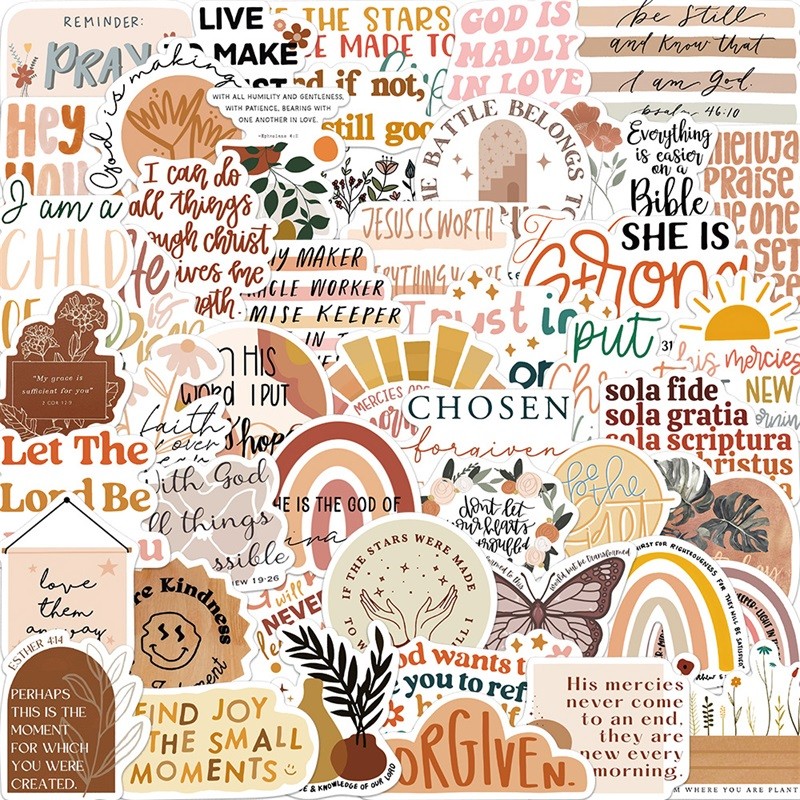 REMINDER:
PRAY
LIVE
TO MAKE
THE STARS
MADE TO
GOD IS
MADLY
IN LOVE
be still
and know that
I am God.
psalm 46:10
God is making
WITH ALL HUMILITY AND GENTLENESS,
WITH PATIENCE, BEARING WITH
ONE ANOTHER IN LOVE.
if not,
still good
Hey
THE BATTLE BELONGS TO
Everything
is easier
on a
Bible
PRAISE
ONE
SET
I can do
all things
through christ
gives me
I am a
CHILD
OF
He
WAY MAKER
MIRACLE WORKER
PROMISE KEEPER
IN
JESUS IS WORTH
EVERYTHING
SHE IS
Strong
Trust in
put
31
his mercies
NEW
"My grace is
sufficient for you"
2 COR 12:9
IN HIS
word I PUT
hope
MERCIES ARE
CHOSEN
forgiven
or
sola fide
sola gratia
sola scriptura
christus
faith
over
Let The
Lord Be
With God
all things
possible
19:26
HE IS THE GOD OF
don't let
your hearts
be troubled
be the
love
them
anyway
Kindness
I will
NEVER
IF THE STARS WERE MADE
TO
would but be transformed
FOR RIGHTEOUSNESS FOR THEY WILL BE SATISFIED
ESTHER 4:14
PERHAPS
THIS IS THE
MOMENT
FOR WHICH
YOU WERE
CREATED.
FIND JOY
IN THE SMALL
MOMENTS
God wants
you to
& KNOWLEDGE OF OUR LORD
FORGIVEN.
His mercies
never come
to an end,
they are
new every
morning.
WHERE YOU ARE